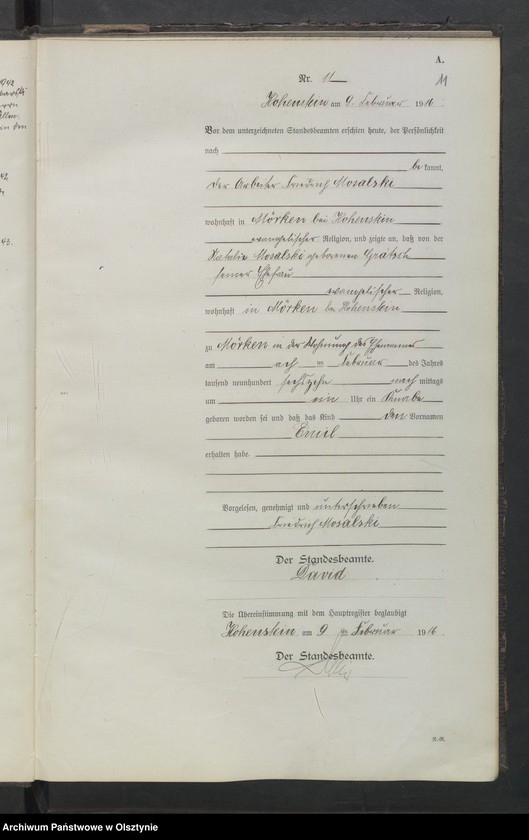 A.
Nr. 11
11
Hohenstein am 9. Februar 1916
Vor dem unterzeichneten Standesbeamten erschien heute, der Persönlichkeit
nach
be kannt,
der Arbeiter Friedrich Mosalski
wohnhaft in Mörken bei Hohenstein
evangelischer Religion, und zeigte an, daß von der
Natalie Mosalski geborenen Grätsch
seiner Ehefrau
evangelischer Religion,
wohnhaft in Mörken bei Hohenstein
zu Mörken in der Wohnung des Ehemannes
am acht ten Februar des Jahres
tausend neunhundert sechszehn nach mittags
um ein Uhr ein Knabe
geboren worden sei und daß das Kind den Vornamen
Emil
erhalten habe.
Vorgelesen, genehmigt und unterschrieben
Friedrich Mosalski
Der Standesbeamte.
David
Die Übereinstimmung mit dem Hauptregister beglaubigt
Hohenstein am 9 ten Februar 1916
Der Standesbeamte.
Archiwum Państwowe w Olsztynie